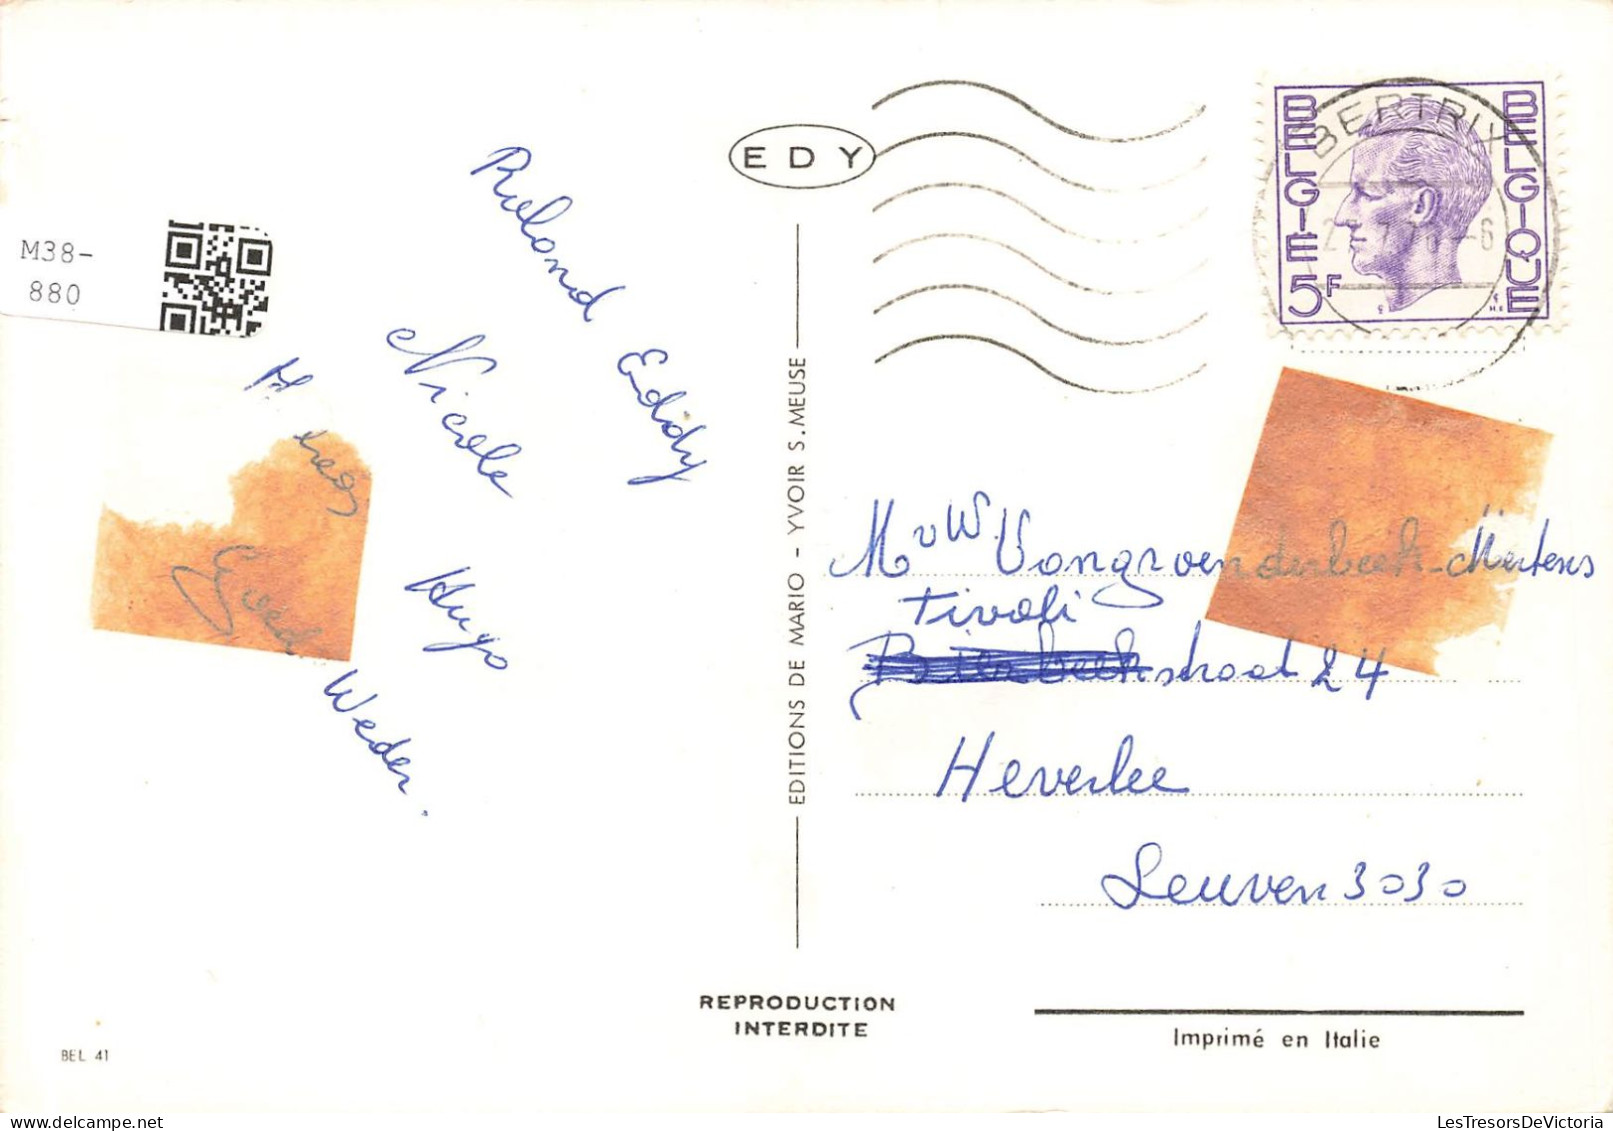 M38-
880
EDY
BELGIE
BELGIQUE
5F
BERTRIX
Roland
Eddy
Nicole
Hugo
Goed Weder.
EDITIONS DE MARIO - YVOIR S. MEUSE
M v W Vangroenderbeek-Mertens
Tivoli
Bierbeekstraat 24
Heverlee
Leuven 3030
REPRODUCTION
INTERDITE
Imprimé en Italie
BEL 41
LesTresorsDeVictoria.com